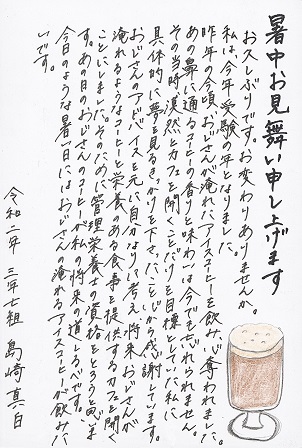 暑中お見舞い申し上げます
お久しぶりです。お変わりありませんか。
私は、今年受験の年となりました。
昨年の今頃、おじさんが淹れたアイスコーヒーを飲み、心奪われました。
あの鼻に通るコーヒーの香りと味わいは今でも忘れられません。
その当時、漠然とカフェを開くことだけを目標としていた私に
具体的に夢を見るきっかけを下さったこと、心から感謝しています。
おじさんのアドバイスを元に自分なりに考え、将来おじさんが
淹れるようなコーヒーと栄養のある食事を提供するカフェを開く
ことにしました。そのために管理栄養士の資格をとろうと思いま
す。あの日のおじさんのコーヒーが私の将来の道しるべです。
今日のような暑い日にはおじさんの淹れるアイスコーヒーが飲みた
いです。
令和二年 三年七組 島崎真白